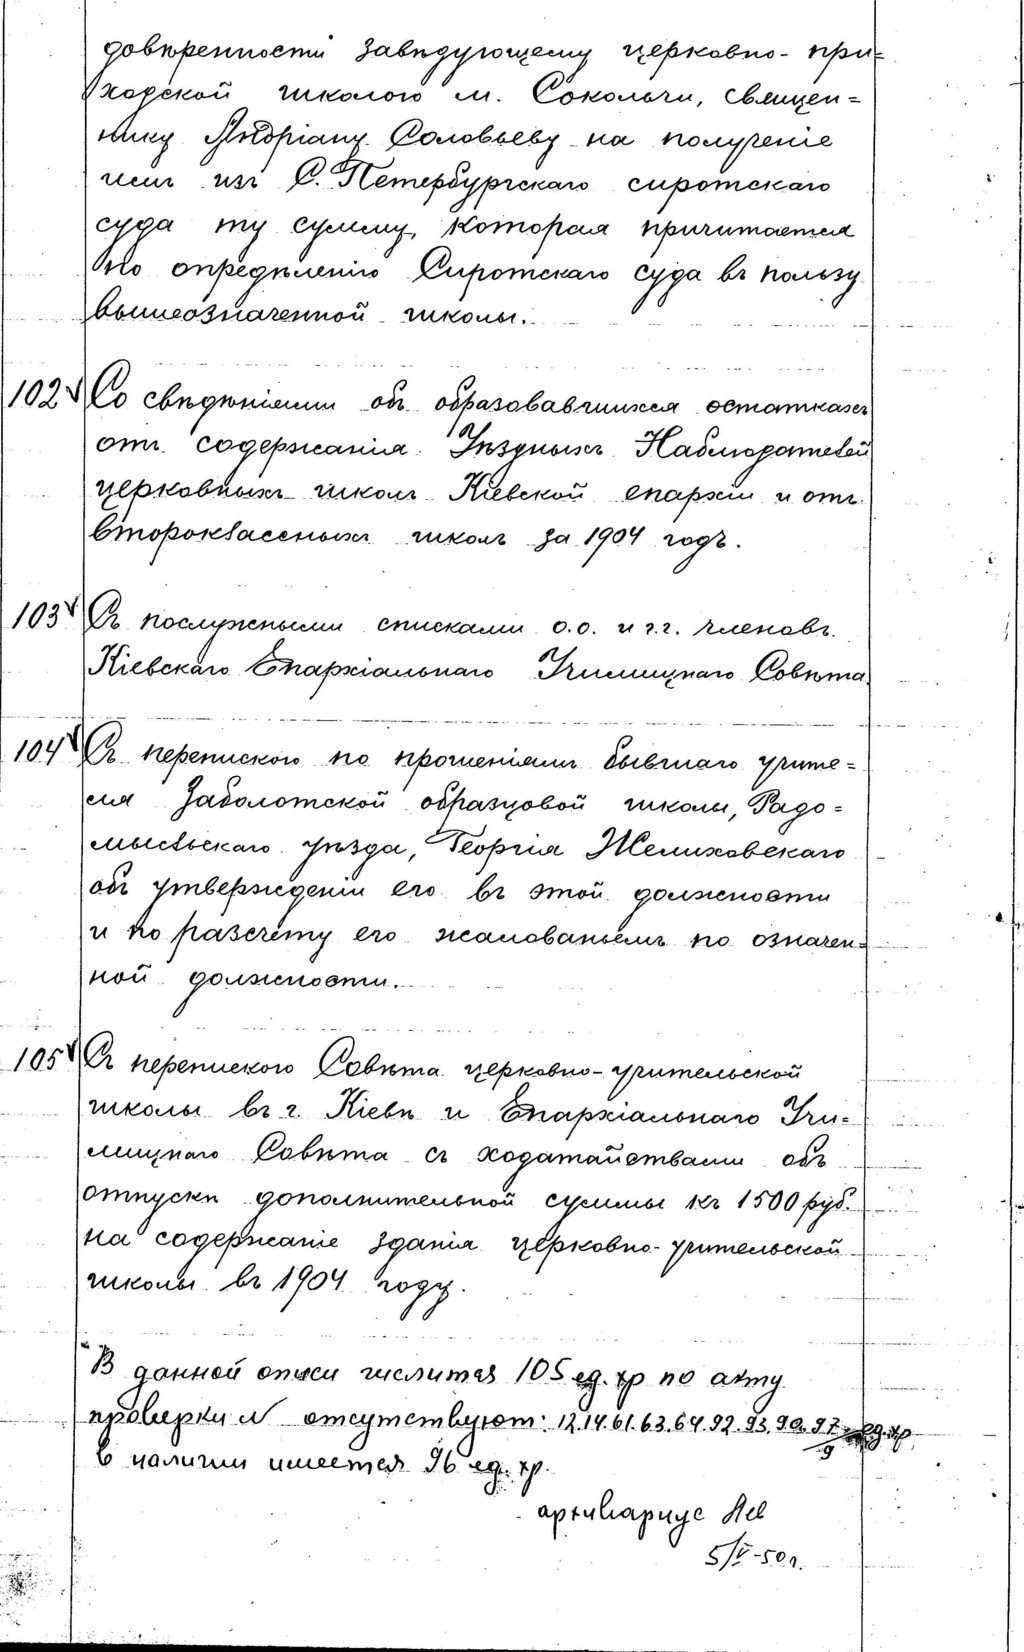 довѣренности завѣдующему церковно-при=
ходской школою м. Сокольчи, священ=
нику Андріану Соловьеву на полученіе
имъ изъ С. Петербургскаго сиротскаго
суда ту сумму, которая причитается
по опредѣленію Сиротскаго суда въ пользу
вышеозначенной школы.
102 Со свѣдѣніями объ образовавшихся остаткахъ
отъ содержанія Уѣздныхъ Наблюдателей
церковныхъ школъ Кіевской епархіи и отъ
второклассныхъ школъ за 1904 годъ.
103 Съ послужными списками о.о. и г.г. членовъ
Кіевскаго Епархіальнаго Училищнаго Совѣта.
104 Съ перепискою по прошеніямъ бывшаго учите=
ля Заболотской образцовой школы, Радо=
мысльскаго уѣзда, Георгія Желиховскаго
объ утвержденіи его въ этой должности
и по разсчету его жалованьемъ по означен=
ной должности.
105 Съ перепискою Совѣта церковно-учительской
школы въ г. Кіевѣ и Епархіальнаго Учи=
лищнаго Совѣта съ ходатайствами объ
отпускѣ дополнительной суммы къ 1500 руб.
на содержаніе зданія церковно-учительской
школы въ 1904 году.
В данной описи числится 105 ед. хр по акту
проверки № отсутствуют: 12.14.61.63.64.92.93.90.97 = ед. хр.
9
в наличии имеется 96 ед. хр.
архивариус
5/V-50 г.